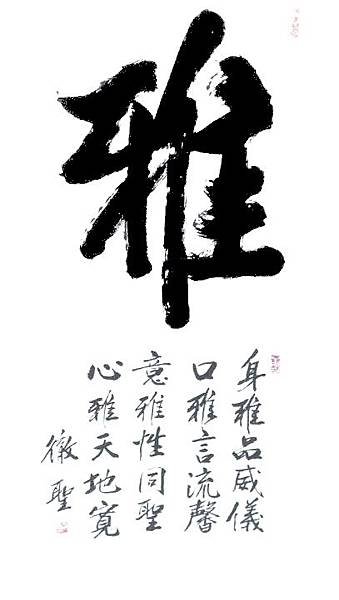 雅
身雅品威儀
口雅言流馨
意雅性同聖
心雅天地寬
徹聖